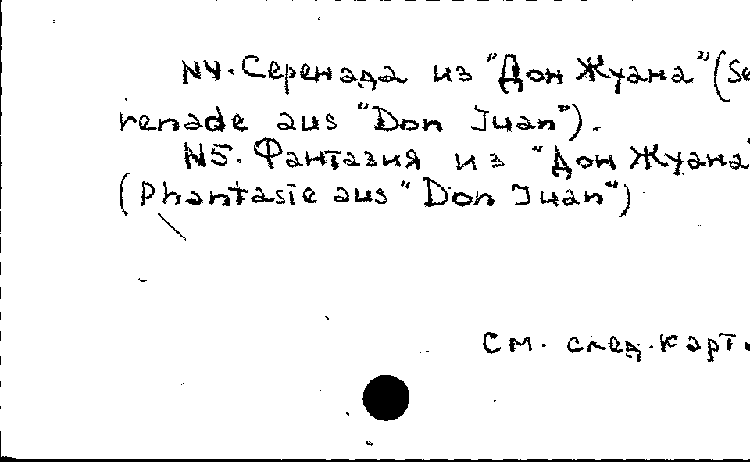 N4. Серенада из "Дон Жуана" (Se
renade aus "Don Juan").
N5. Фантазия из "Дон Жуана"
(Phantasie aus "Don Juan")
См. след. карт.